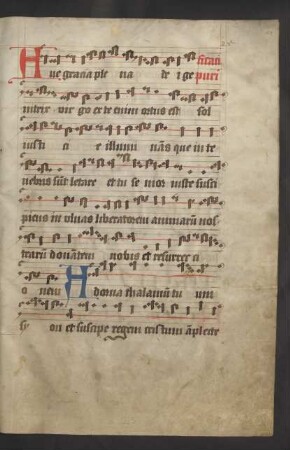 Aue gracia ple na de i ge puri
ficati
nitrix vir go ex te enim ortus est sol
iusti ci e illumi nans que in te
nebris sunt letare et tu se nior iuste susci
piens in vlnas liberatorem animarum nos
trarum donantem nobis et resurrec ci
o nem Adorna thalamum tu um
sy on et suscipe regem cristum amplecte